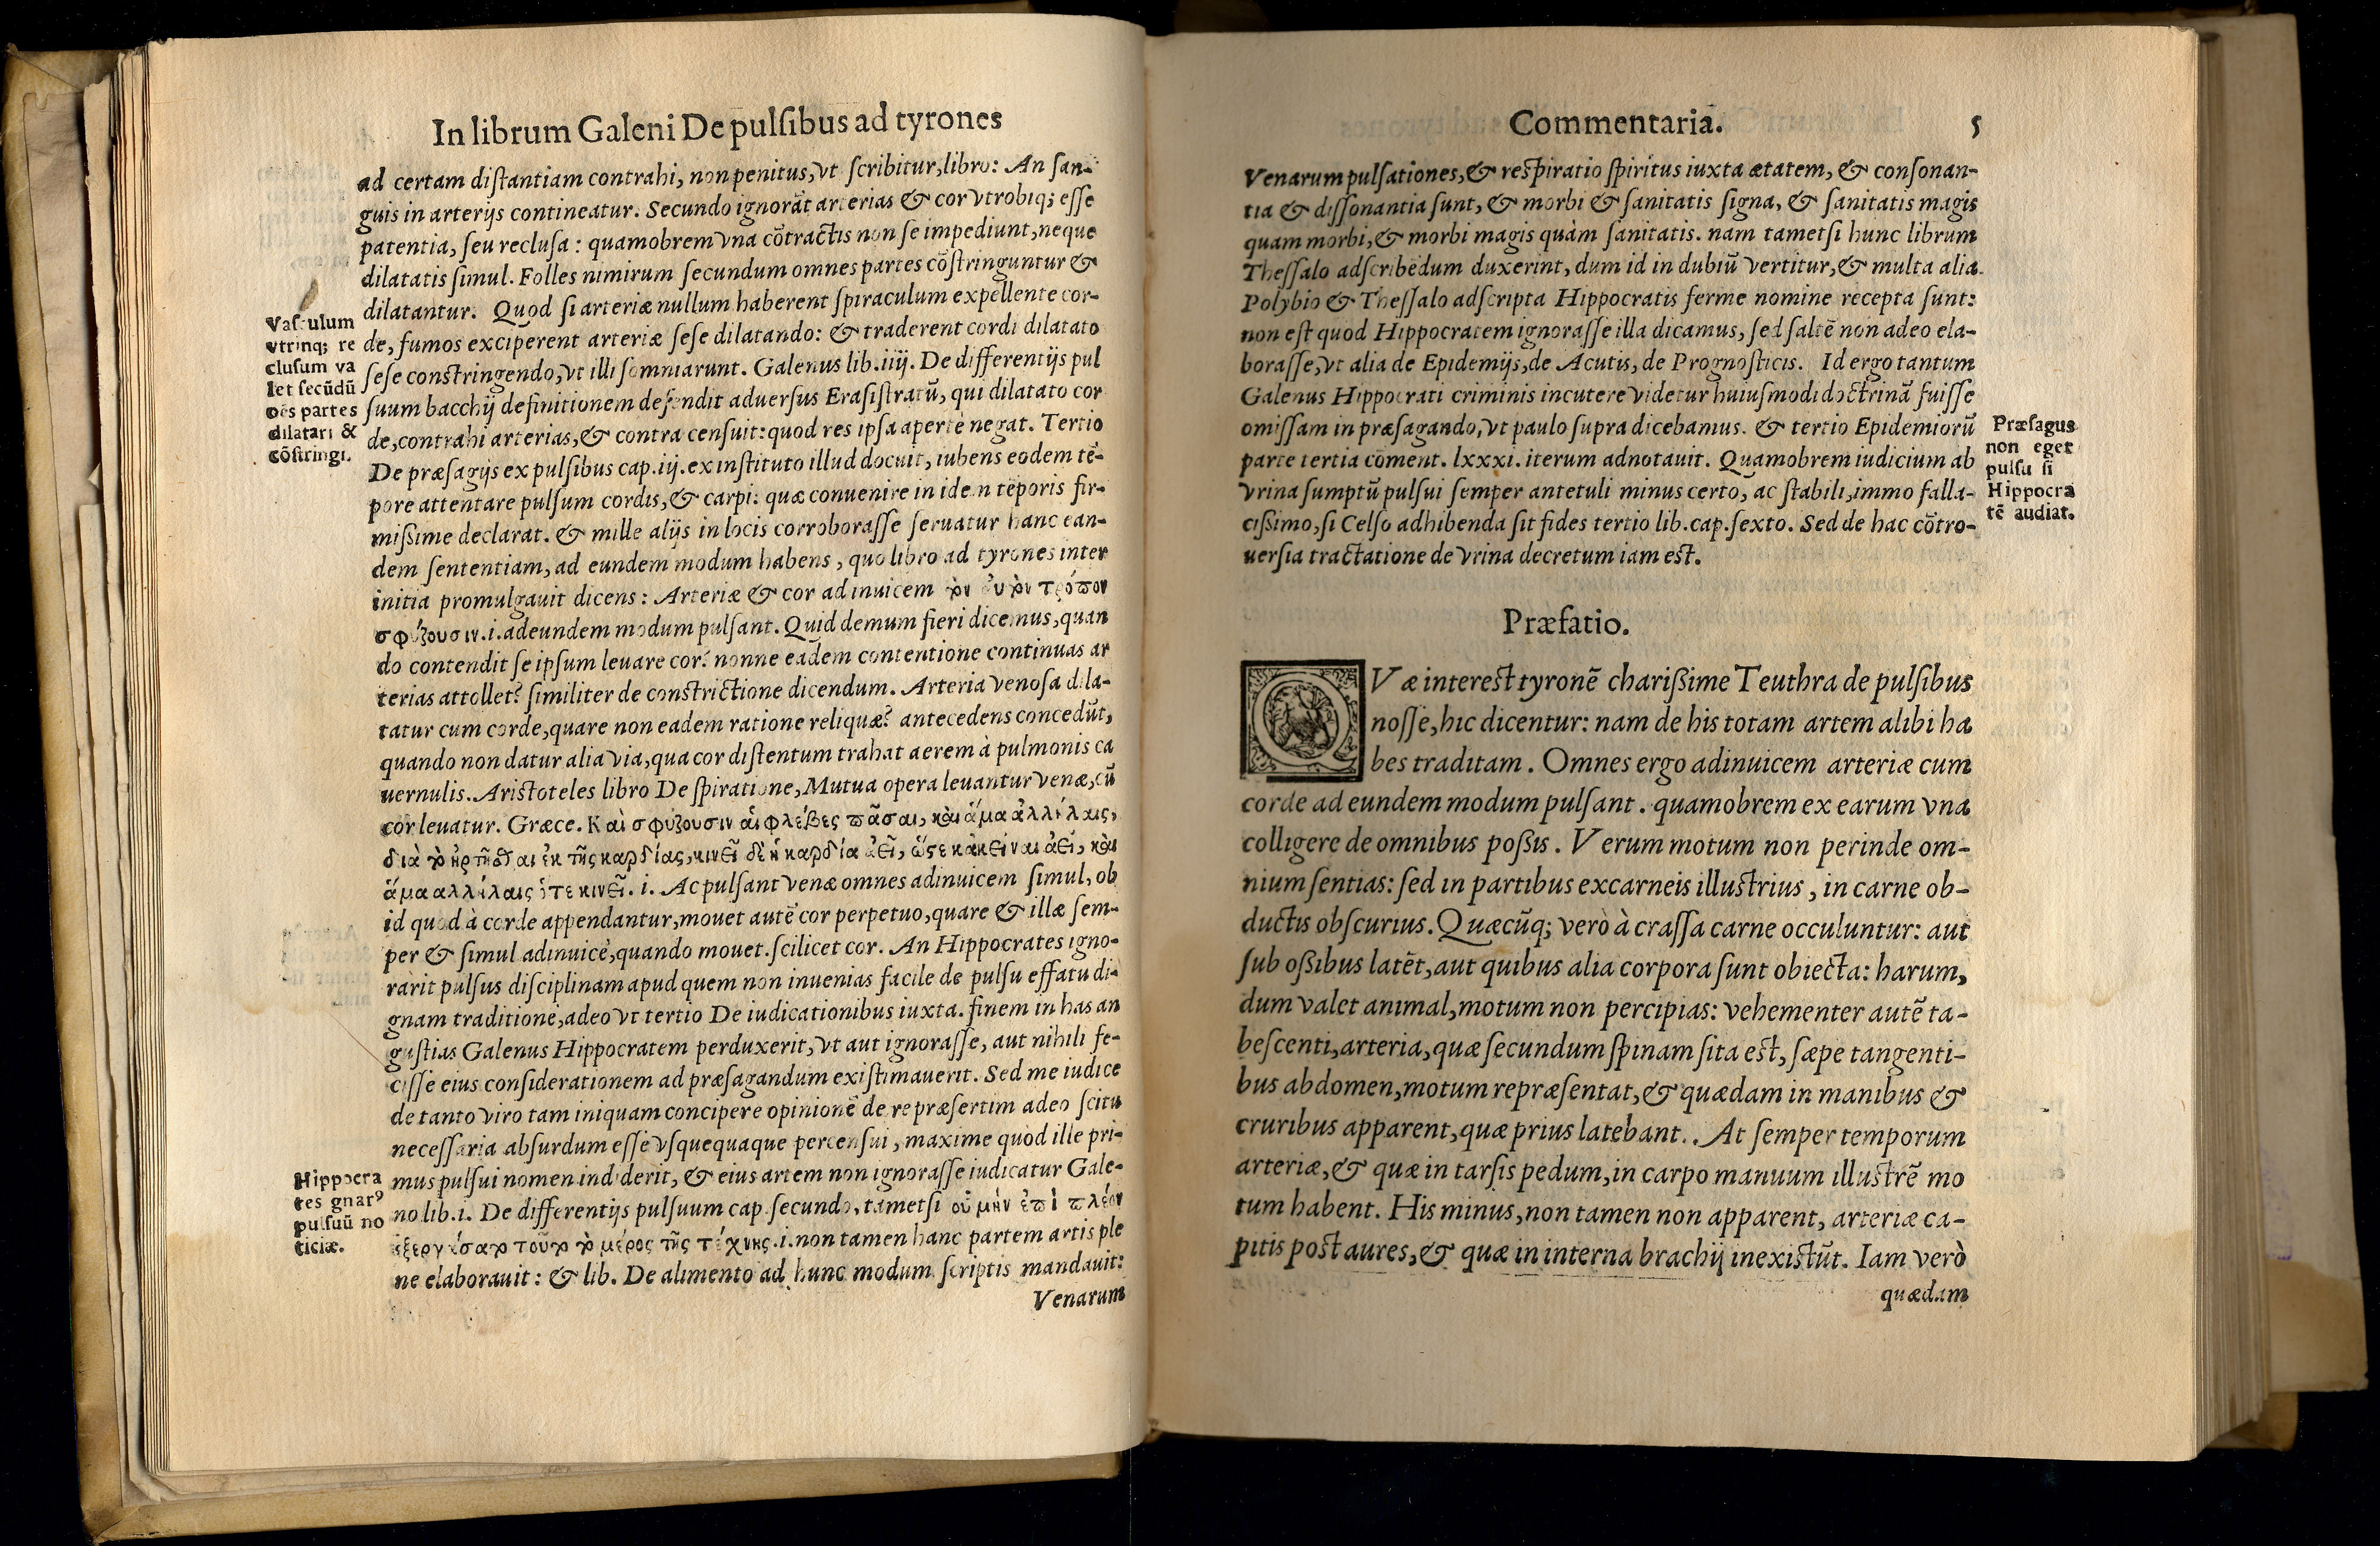 In librum Galeni De pulsibus ad tyrones
ad certam distantiam contrahi, non penitus, vt scribitur, libro: An san-
guis in arterijs contineatur. Secundo ignorāt arterias & cor vtrobiq; esse
patentia, seu reclusa: quamobrem vna cōtractis non se impediunt, neque
dilatatis simul. Folles nimirum secundum omnes partes cōstringuntur &
dilatantur. Quod si arteriæ nullum haberent spiraculum expellente cor-
de, fumos exciperent arteriæ sese dilatando: & traderent cordi dilatato
sese constringendo, vt illi somniarunt. Galenus lib. iiij. De differentijs pul
suum bacchij definitionem defendit aduersus Erasistratū, qui dilatato cor
de, contrahi arterias, & contra censuit: quod res ipsa aperte negat. Tertio
De præsagijs ex pulsibus cap. ij. ex instituto illud docuit, iubens eodem tē-
pore attentare pulsum cordis, & carpi: quæ conuenire in idem tēporis fir-
missime declarat. & mille alijs in locis corroborasse seruatur hanc ean-
dem sententiam, ad eundem modum habens, quo libro ad tyrones inter
initia promulgauit dicens: Arteriæ & cor ad inuicem τὸν αὐτὸν τρόπον
σφύζουσιν. i. adeundem modum pulsant. Quid demum fieri dicemus, quan
do contendit se ipsum leuare cor? nonne eadem contentione continuas ar
terias attollet? similiter de constrictione dicendum. Arteria venosa dila-
tatur cum corde, quare non eadem ratione reliquæ? antecedens concedūt,
quando non datur alia via, qua cor distentum trahat aerem à pulmonis ca
uernulis. Aristoteles libro De spiratione, Mutua opera leuantur venæ, cū
cor leuatur. Græce. Καὶ σφύζουσιν αἱ φλέβες πᾶσαι, καὶ ἅμα ἀλλήλαις,
διὰ τὸ ἠρτῆσθαι ἐκ τῆς καρδίας, κινεῖ δὲ ἡ καρδία ἀεὶ, ὥστε κἀκεῖναι ἀεί, καὶ
ἅμα ἀλλήλαις ὅτε κινεῖ. i. Ac pulsant venæ omnes adinuicem simul, ob
id quod à corde appendantur, mouet autē cor perpetuo, quare & illæ sem-
per & simul adinuicē, quando mouet. scilicet cor. An Hippocrates igno-
rarit pulsus disciplinam apud quem non inuenias facile de pulsu effatu di-
gnam traditionē, adeo vt tertio De iudicationibus iuxta. finem in has an
gustias Galenus Hippocratem perduxerit, vt aut ignorasse, aut nihili fe-
cisse eius considerationem ad præsagandum existimauerit. Sed me iudice
de tanto viro tam iniquam concipere opinionē de re præsertim adeo scitu
necessaria absurdum esse vsquequaque percensui, maxime quòd ille pri-
mus pulsui nomen indiderit, & eius artem non ignorasse iudicatur Gale-
no lib. i. De differentijs pulsuum cap. secundo, tametsi οὐ μὴν ἐπὶ πλέον
ἐξεργάσατο τοῦτο τὸ μέρος τῆς τέχνης. i. non tamen hanc partem artis ple
ne elaborauit: & lib. De alimento ad hunc modum scriptis mandauit:
Venarum
Vasculum
vtrinq; re
clusum va
let secūdū
oēs partes
dilatari &
cōstringi.
Hippocra
tes gnarꝰ
pulsuū no
ticiæ.
Commentaria. 5
Venarum pulsationes, & respiratio spiritus iuxta ætatem, & consonan-
tia & dissonantia sunt, & morbi & sanitatis signa, & sanitatis magis
quam morbi, & morbi magis quàm sanitatis. nam tametsi hunc librum
Thessalo adscribēdum duxerint, dum id in dubiū vertitur, & multa alia
Polybio & Thessalo adscripta Hippocratis ferme nomine recepta sunt:
non est quod Hippocratem ignorasse illa dicamus, sed saltē non adeo ela-
borasse, vt alia de Epidemijs, de Acutis, de Prognosticis. Id ergo tantum
Galenus Hippocrati criminis incutere videtur huiusmodi doctrinā fuisse
omissam in præsagando, vt paulo supra dicebamus. & tertio Epidemiorū
parte tertia cōment. lxxxi. iterum adnotauit. Quamobrem iudicium ab
vrina sumptū pulsui semper antetuli minus certo, ac stabili, immo falla-
cissimo, si Celso adhibenda sit fides tertio lib. cap. sexto. Sed de hac cōtro-
uersia tractatione de vrina decretum iam est.
Præsagus
non eget
pulsu si
Hippocra
tē audiat.
Præfatio.
QVæ interest tyronē charissime Teuthra de pulsibus
nosse, hic dicentur: nam de his totam artem alibi ha
bes traditam. Omnes ergo adinuicem arteriæ cum
corde ad eundem modum pulsant. quamobrem ex earum vna
colligere de omnibus possis. Verum motum non perinde om-
nium sentias: sed in partibus excarneis illustrius, in carne ob-
ductis obscurius. Quæcūq; verò à crassa carne occuluntur: aut
sub ossibus latēt, aut quibus alia corpora sunt obiecta: harum,
dum valet animal, motum non percipias: vehementer autē ta-
bescenti, arteria, quæ secundum spinam sita est, sæpe tangenti-
bus abdomen, motum repræsentat, & quædam in manibus &
cruribus apparent, quæ prius latebant. At semper temporum
arteriæ, & quæ in tarsis pedum, in carpo manuum illustrē mo
tum habent. His minus, non tamen non apparent, arteriæ ca-
pitis post aures, & quæ in interna brachij inexistūt. Iam verò
quædam